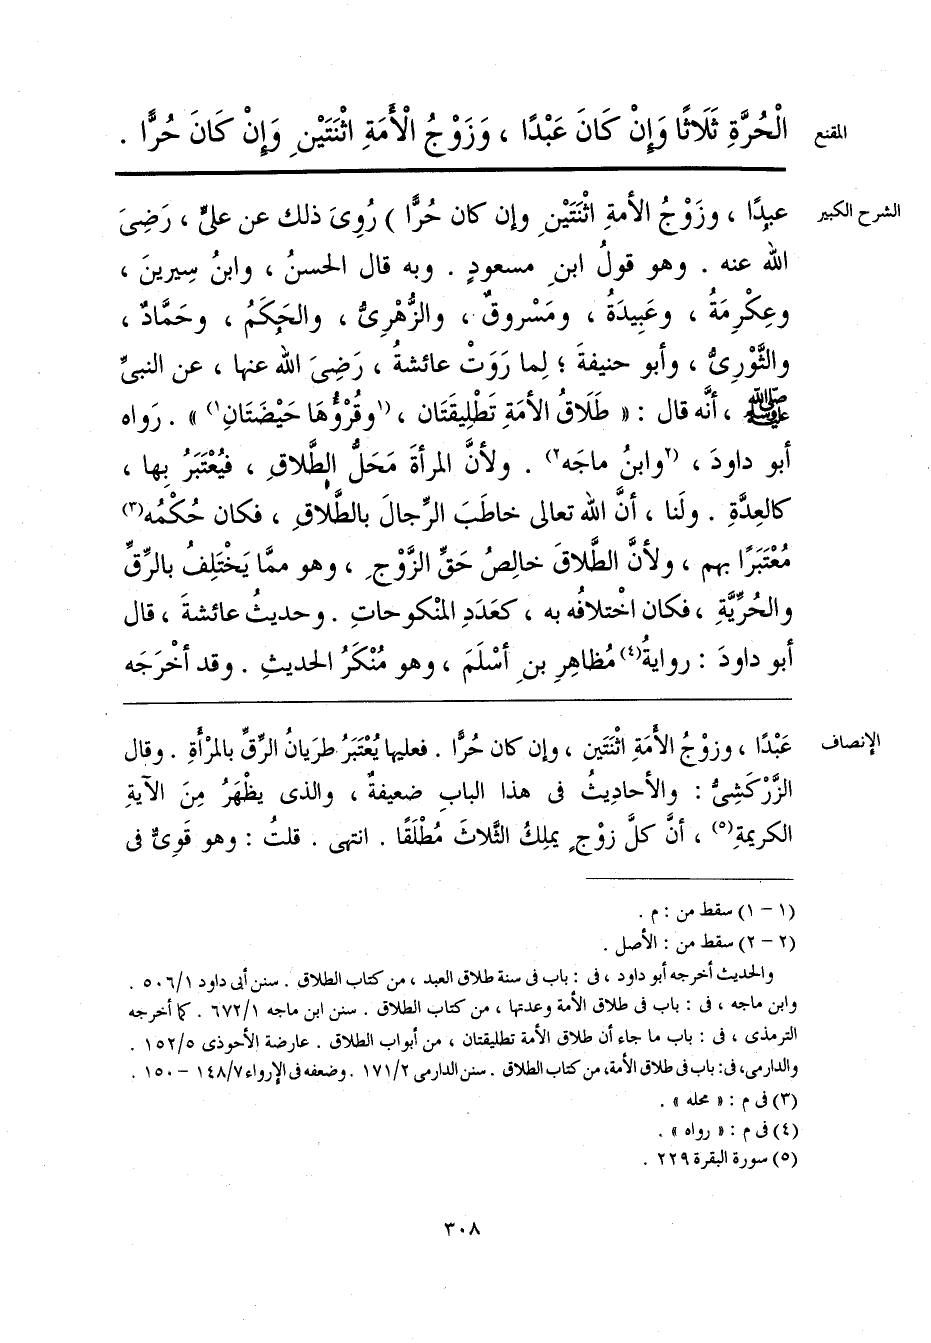 المقنع الْحُرَّةِ ثَلَاثًا وَإِنْ كَانَ عَبْدًا ، وَزَوْجُ الْأَمَةِ اثْنَتَيْنِ وَإِنْ كَانَ حُرًّا .
الشرح الكبير عبدًا ، وزَوْجُ الأمةِ اثْنَتَيْنِ وإن كان حُرًّا ) رُوِىَ ذلك عن علىٍّ ، رَضِىَ
الله عنه . وهو قولُ ابنِ مسعودٍ . وبه قال الحسنُ ، وابنُ سِيرينَ ،
وعِكْرِمَةُ ، وعَبِيدَةُ ، ومَسْروقٌ ، والزُّهْرِىُّ ، والحَكَمُ ، وحَمَّادٌ ،
والثَّوْرِىُّ ، وأبو حنيفةَ ؛ لِما رَوَتْ عائشةُ ، رَضِىَ الله عنها ، عن النبىِّ
ﷺ ، أنَّه قال : « طَلَاقُ الأمَةِ تَطْلِيقَتَان ، (١وقُرْؤُهَا حَيْضَتَانِ١) » . رَواه
أبو داودَ ، (٢وابنُ ماجَه٢) . ولأنَّ المرأةَ مَحَلُّ الطَّلاقِ ، فيُعْتَبَرُ بِها ،
كالعِدَّةِ . ولَنا ، أنَّ الله تعالى خاطَبَ الرِّجالَ بالطَّلاقِ ، فكان حُكْمُه(٣)
مُعْتَبَرًا بهم ، ولأنَّ الطَّلاقَ خالِصُ حَقِّ الزَّوْجِ ، وهو ممَّا يَخْتَلِفُ بالرِّقِّ
والحُرِّيَّةِ ، فكان اخْتلافُه به ، كعَدَدِ المنْكوحاتِ . وحديثُ عائشةَ ، قال
أبو داودَ : روايةُ(٤) مُظاهِرِ بنِ أسْلَمَ ، وهو مُنْكَرُ الحديثِ . وقد أخْرَجَه
الإنصاف عَبْدًا ، وزوْجُ الأمَةِ اثْنَتَين ، وإن كان حُرًّا . فعليها يُعْتَبَرُ طرَيانُ الرِّقِّ بالمرْأةِ . وقال
الزَّرْكَشِىُّ : والأحاديثُ فى هذا البابِ ضعيفةٌ ، والذى يظْهَرُ مِنَ الآيةِ
الكريمةِ(٥) ، أنَّ كلَّ زوْجٍ يملِكُ الثَّلاثَ مُطْلَقًا . انتهى . قلتُ : وهو قَوِىٌّ فى
(١ - ١) سقط من : م .
(٢ - ٢) سقط من : الأصل .
والحديث أخرجه أبو داود ، فى : باب فى سنة طلاق العبد ، من كتاب الطلاق . سنن أبى داود ١/٥٠٦ .
وابن ماجه ، فى : باب فى طلاق الأمة وعدتها ، من كتاب الطلاق . سنن ابن ماجه ١/٦٧٢ . كما أخرجه
الترمذى ، فى : باب ما جاء أن طلاق الأمة تطليقتان ، من أبواب الطلاق . عارضة الأحوذى ٥/١٥٢ .
والدارمى، فى: باب فى طلاق الأمة، من كتاب الطلاق . سنن الدارمى ٢/١٧١ . وضعفه فى الإرواء ٧/١٤٨ - ١٥٠ .
(٣) فى م : « محله » .
(٤) فى م : « رواه » .
(٥) سورة البقرة ٢٢٩ .
٣٠٨